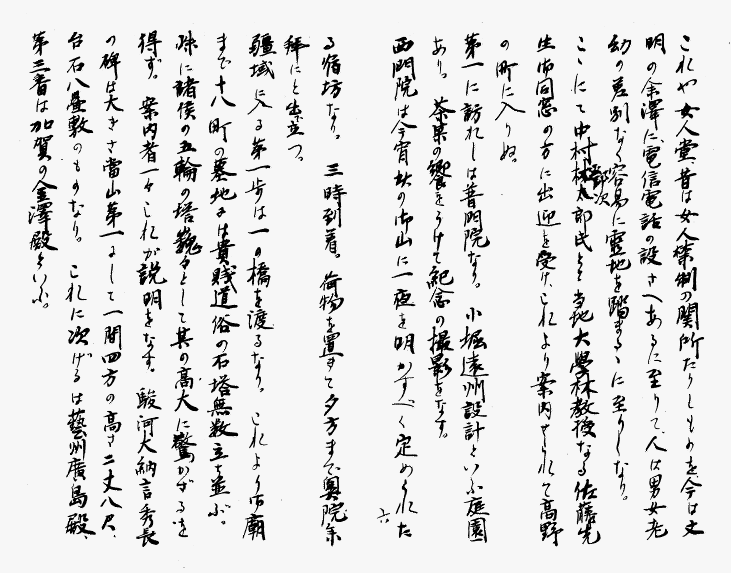 これや女人堂昔は女人禁制の関所たりしものを今は文
明の余澤に電信電話の設さへあるに至りて、人は男女老
幼の差別なく容易に靈地を踏まるゝに至りしなり。
こゝにて中村林太郎次郎氏と当地大學林教授なる佐藤先
生同窓の方に出迎を受け、これより案内せられて高野
の町に入りぬ。
第一に訪れしは普門院なり。小堀遠州設計といふ庭園
あり。茶菓の饗をうけて紀念の撮影をなす。
西門院は今宵此の御山に一夜を明かすべく定められた
六
る宿坊なり。三時到着。荷物を置きて夕方まで奥院参
拜にと出立つ。
疆域に入る第一歩は一の橋を渡るなり。これより御廟
まで十八町の墓地には貴賤道俗の石塔無数立ち並ぶ。
殊に諸侯の五輪の塔巍々として其の高大に驚かざるを
得ず。案内者一々これが説明をなす。駿河大納言秀長
の碑は大きさ當山第一にして一間四方の高さ二丈八尺、
台石八畳敷のものなり。これに次げるは藝州廣島殿、
第三番は加賀の金澤殿といふ。